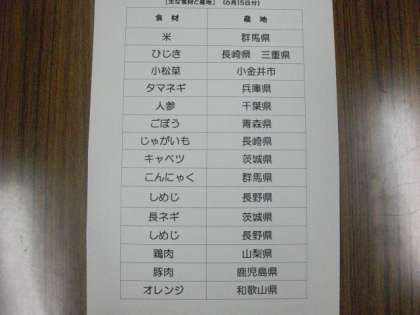 ［主な食材と産地］（6月15日分）
食材 産地
米 群馬県
ひじき 長崎県 三重県
小松菜 小金井市
タマネギ 兵庫県
人参 千葉県
ごぼう 青森県
じゃがいも 長崎県
キャベツ 茨城県
こんにゃく 群馬県
しめじ 長野県
長ネギ 茨城県
しめじ 長野県
鶏肉 山梨県
豚肉 鹿児島県
オレンジ 和歌山県